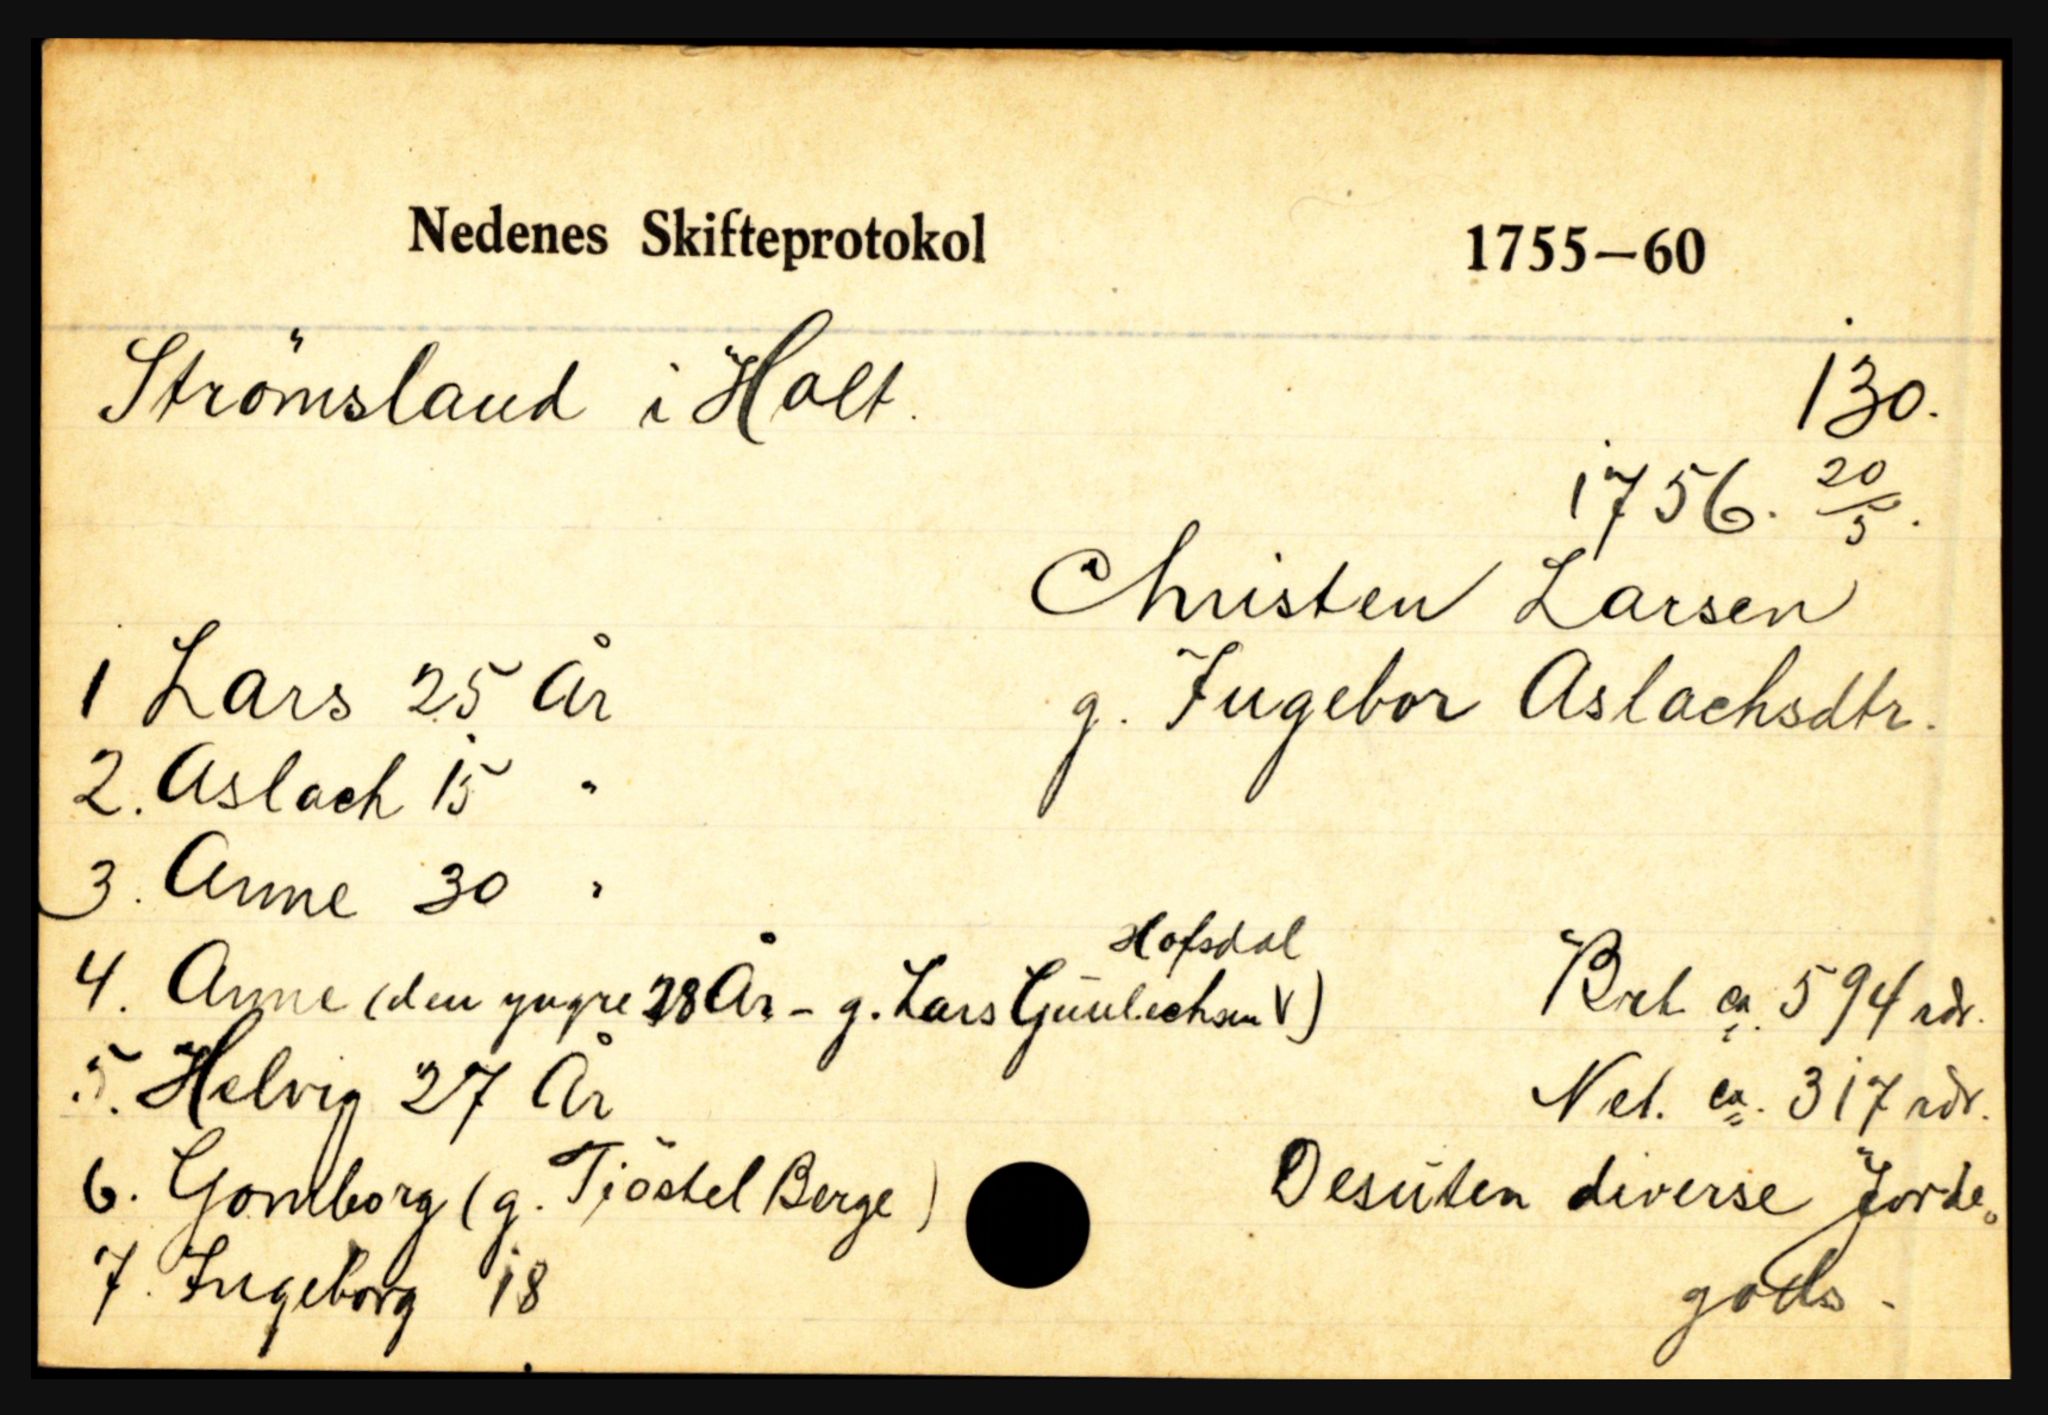 Nedenes Skifteprotokol 1755—60
Strömsland i Holt. 130.
1756. 20/5.
Christen Larsen
g. Ingebor Aslachsdtr.
1 Lars 25 År
2. Aslach 15 "
3. Anne 30 "
4. Anne (den yngre 28 År - g. Lars Gunlechsen V Hofsdal)
5. Helvig 27 År
6. Gomborg (g. Tjöstel Berge)
7. Ingeborg 18
Brt. ca. 594 rdr.
Net. ca. 317 rdr.
Desuten diverse Jorde-
gods.